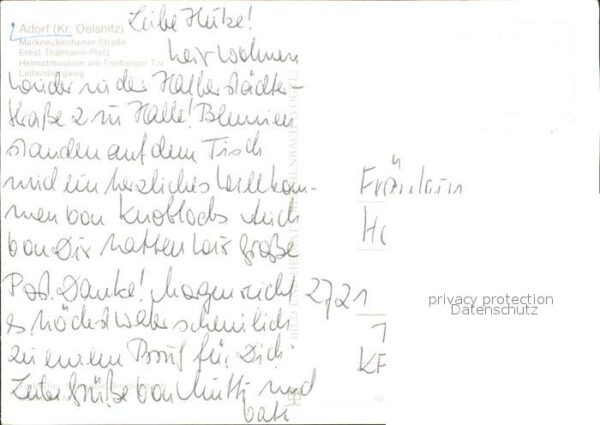 Adorf (Kr. Oelsnitz)
Markneukirchener Straße
Ernst-Thälmann-Platz
Heimatmuseum am Freiberger Tor
Leitenbergweg
Liebe Heike!
wir wohnen
wieder in der Halberstädter-
straße 2 in Halle! Blumen
standen auf dem Tisch
und ein herzliches Willkom-
men von Knoblochs Auch
von Dir hatten wir große
Post. Danke! Morgen reicht
es höchstwahrscheinlich
zu einem Brief für Dich
Liebe Grüße von Mutti und
Vati
Fräulein
2721
privacy protection
Datenschutz